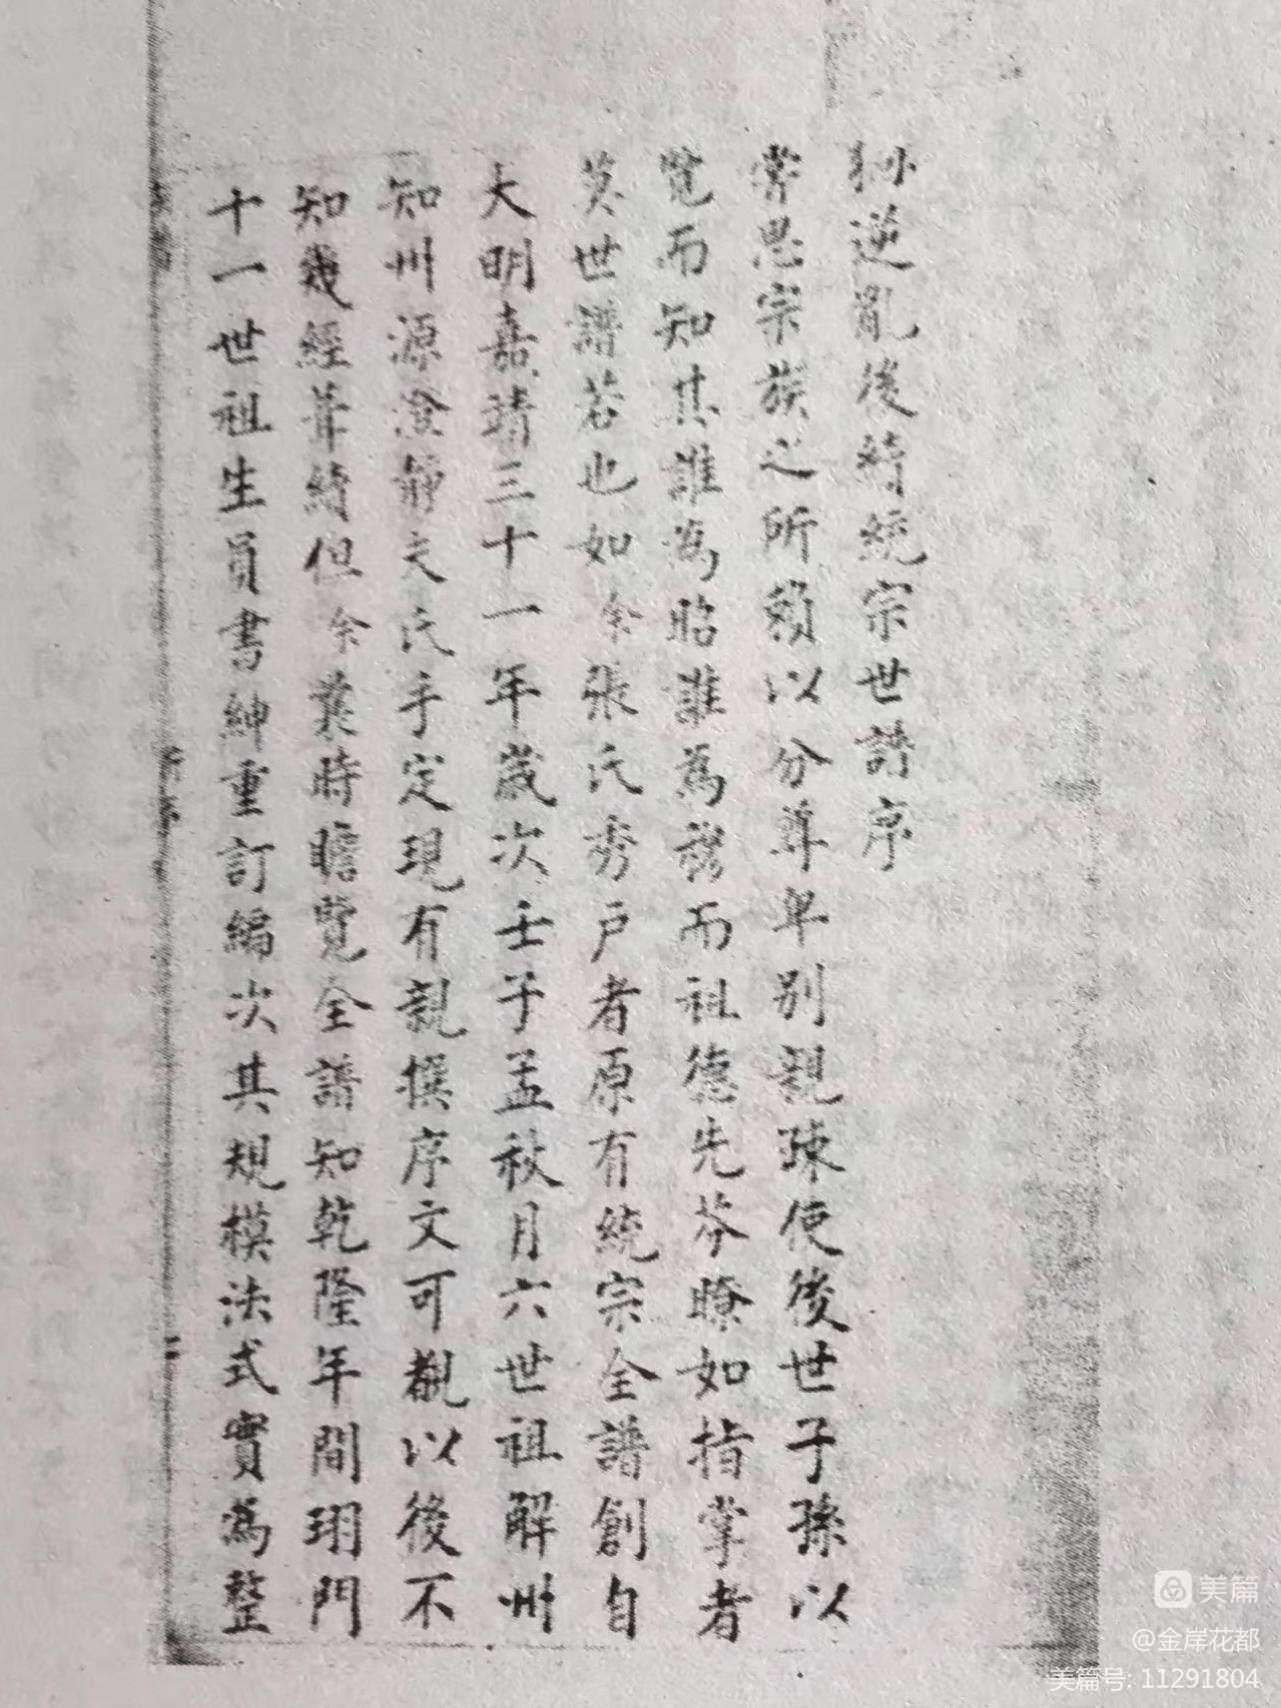 逆亂後續統宗世譜序
嘗思宗族之所賴以分尊卑別親疎使後世子孫以
覽而知其誰為昭誰為穆而祖德先芬瞭如指掌者
莫世譜若也如余張氏秀戶者原有統宗全譜創自
大明嘉靖三十一年歲次壬子孟秋月六世祖解州
知州源澄靜夫氏手定現有親撰序文可觀以後不
知幾經葺續但余曩時瞻覽全譜知乾隆年間珝門
十一世祖生員書紳重訂編次其規模法式實為整
美篇
@金岸花都
美篇号: 11291804